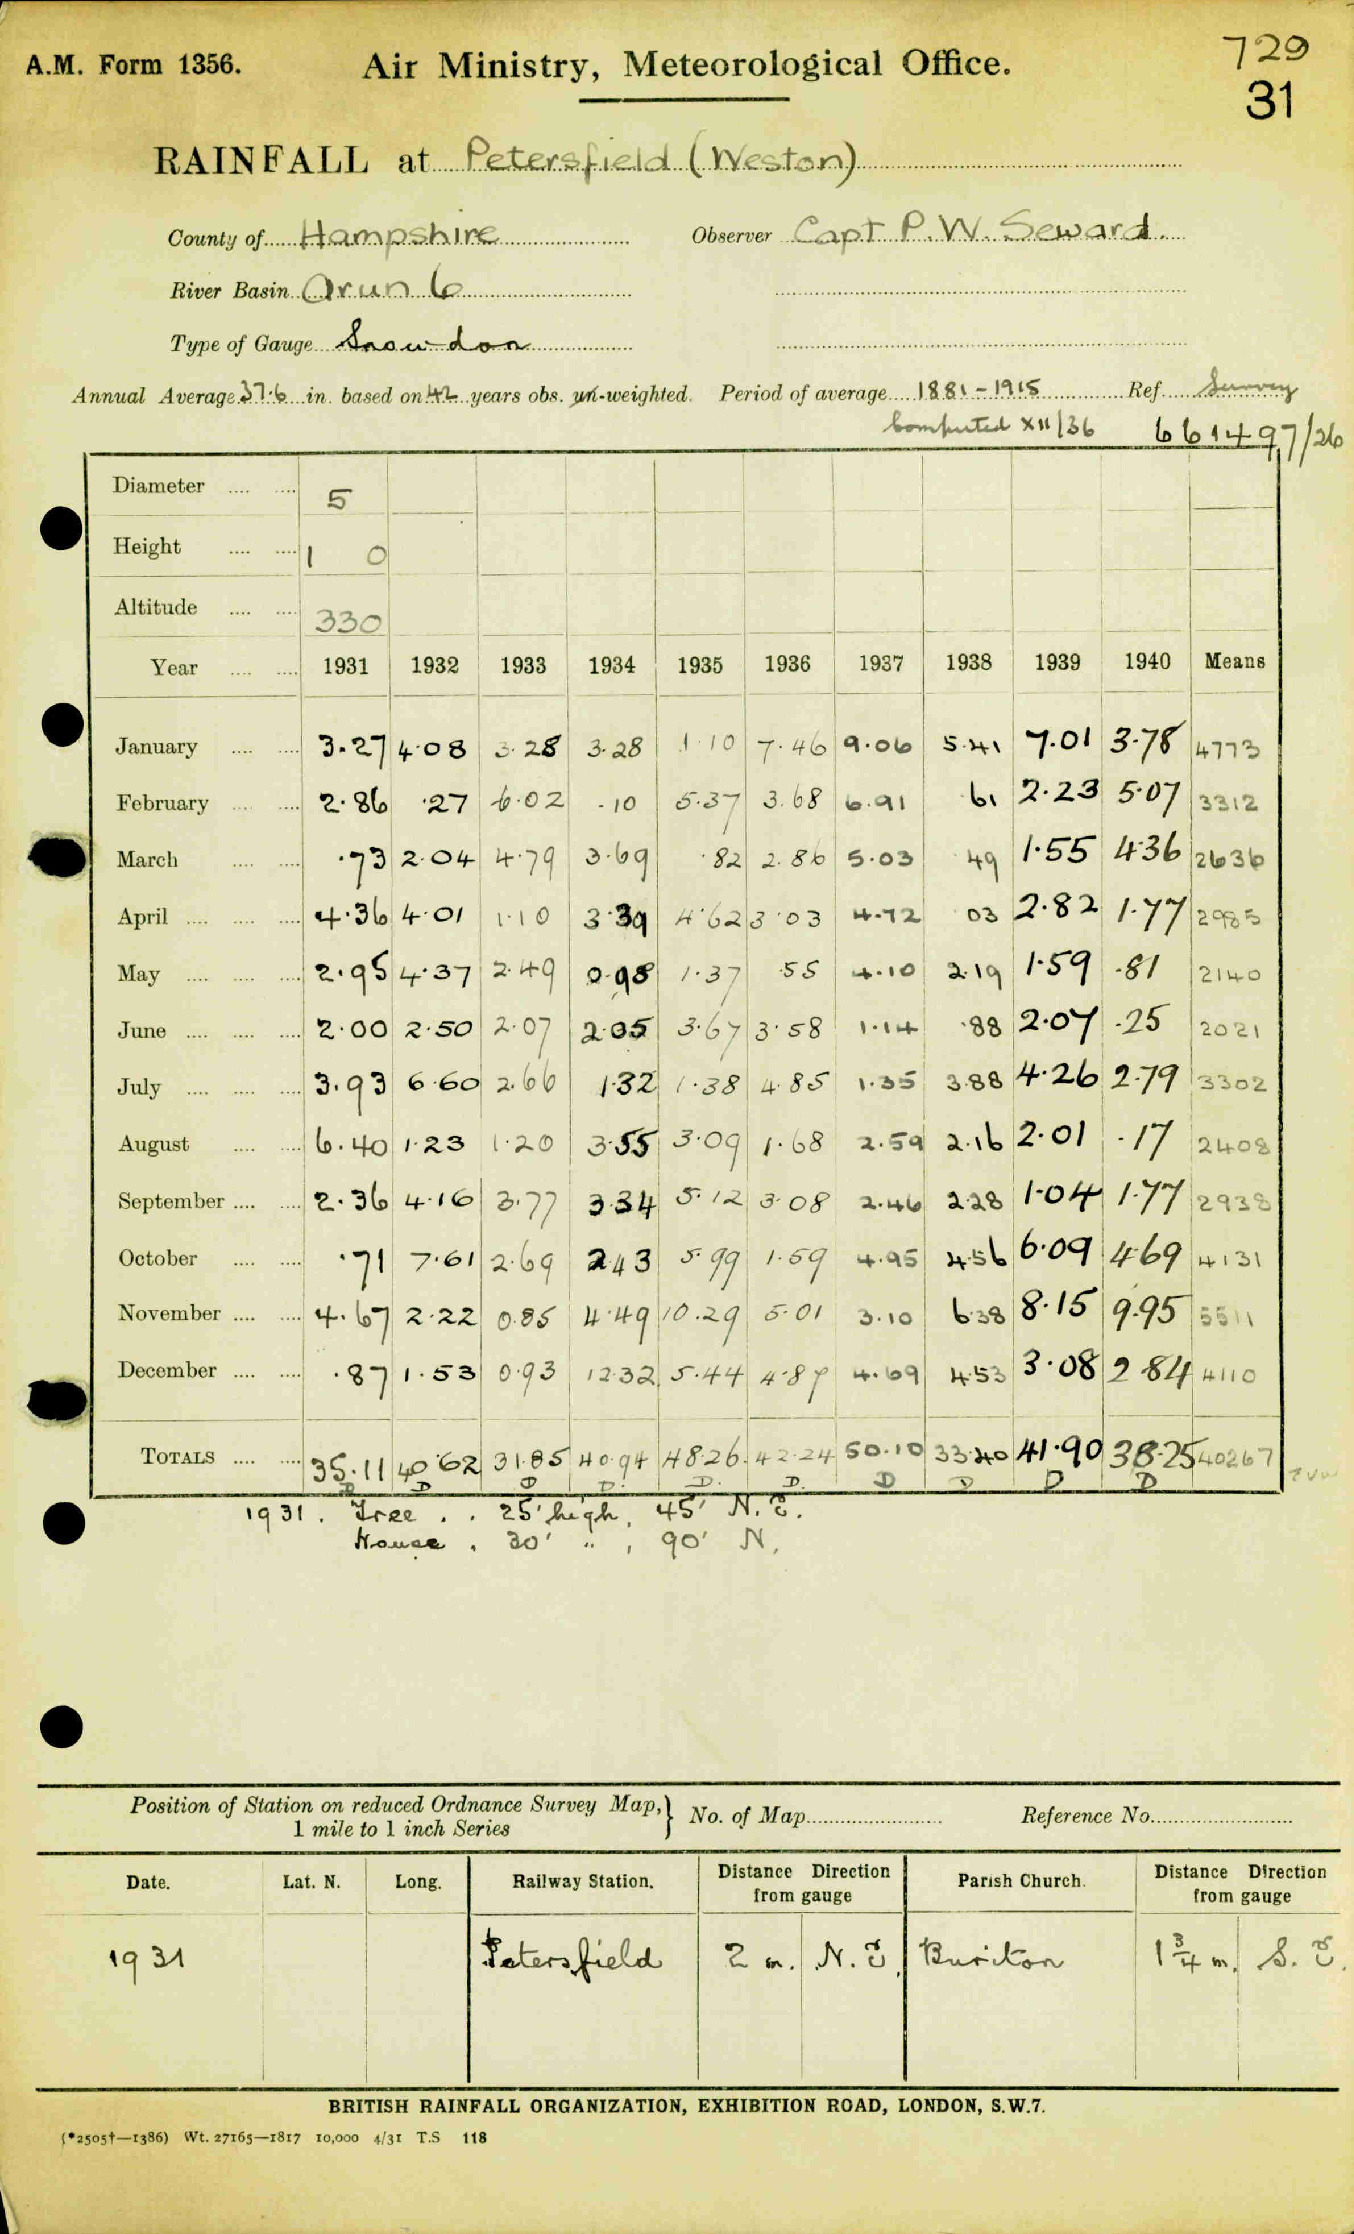 729
A.M. Form 1356. Air Ministry, Meteorological Office.
31
RAINFALL at Petersfield (Weston)
County of Hampshire Observer Capt P. W. Seward.
River Basin Arun 6
Type of Gauge Snowdon
Annual Average 37.6 in. based on 42 years obs. un-weighted. Period of average 1881-1915 Ref. Survey
Computed XII/36 661497/26
Diameter 5
Height 1 0
Altitude 330
Year 1931 1932 1933 1934 1935 1936 1937 1938 1939 1940 Means
January 3.27 4.08 3.28 3.28 1.10 7.46 9.06 5.41 7.01 3.78 4773
February 2.86 .27 6.02 .10 5.37 3.68 6.91 61 2.23 5.07 3312
March .73 2.04 4.79 3.69 .82 2.86 5.03 49 1.55 4.36 2636
April 4.36 4.01 1.10 3.39 4.62 3.03 4.72 03 2.82 1.77 2985
May 2.95 4.37 2.49 0.98 1.37 .55 4.10 2.19 1.59 .81 2140
June 2.00 2.50 2.07 2.05 3.67 3.58 1.14 .88 2.07 .25 2021
July 3.93 6.60 2.66 1.32 1.38 4.85 1.35 3.88 4.26 2.79 3302
August 6.40 1.23 1.20 3.55 3.09 1.68 2.59 2.16 2.01 .17 2408
September 2.36 4.16 3.77 3.34 5.12 3.08 2.46 2.28 1.04 1.77 2938
October .71 7.61 2.69 2.43 5.99 1.59 4.95 4.56 6.09 4.69 4131
November 4.67 2.22 0.85 4.49 10.29 5.01 3.10 6.38 8.15 9.95 5511
December .87 1.53 0.93 12.32 5.44 4.87 4.69 4.53 3.08 2.84 4110
TOTALS 35.11 40.62 31.85 40.94 48.26 42.24 50.10 33.40 41.90 38.25 40267
D D D D. D. D. D D D D
1931. Tree . . 25' high, 45' N.E.
House . 30' " , 90' N.
Position of Station on reduced Ordnance Survey Map, 1 mile to 1 inch Series } No. of Map Reference No.
Date. Lat. N. Long. Railway Station. Distance Direction from gauge Parish Church. Distance Direction from gauge
1931 Petersfield 2 m. N.E. Buriton 1 3/4 m. S.E.
BRITISH RAINFALL ORGANIZATION, EXHIBITION ROAD, LONDON, S.W.7.
(*2505†—1386) Wt. 27165—1817 10,000 4/31 T.S 118